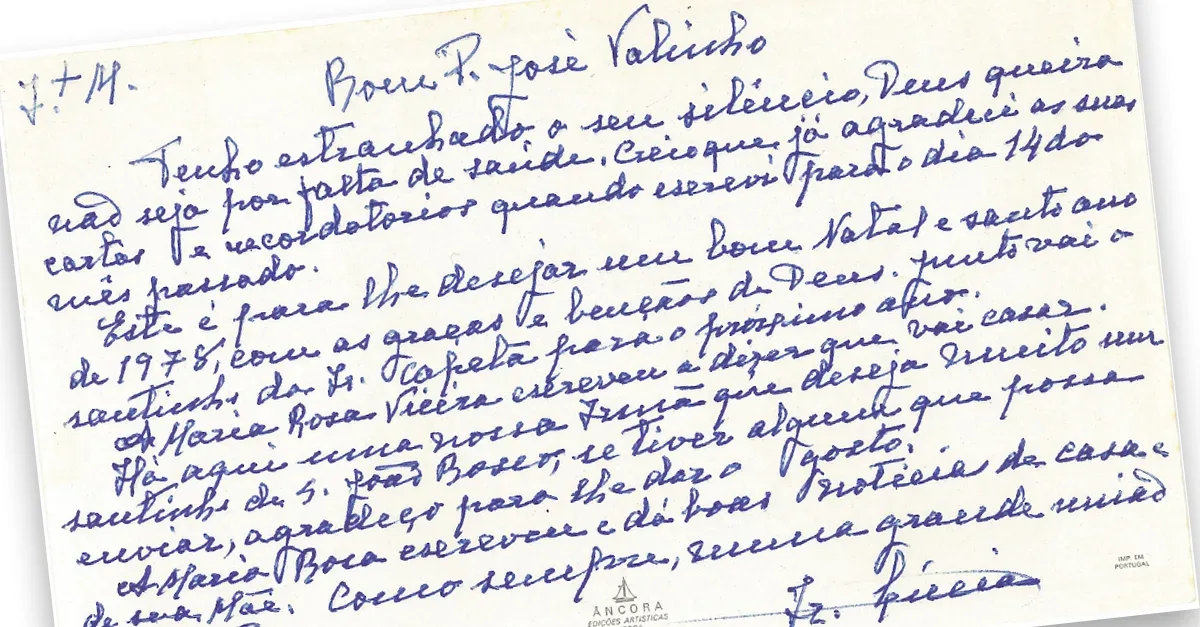 J. + M.
Bom P. José Valinho
Tenho estranhado o seu silêncio, Deus queira
não seja por falta de saúde. Creio que já agradeci as suas
cartas e recordatorios quando escrevi para o dia 14 do
mês passado.
Este é para lhe desejar um bom Natal e santo ano
de 1978, com as graças e bençãos de Deus. junto vai o
santinho da Ir. Capeta para o próximo ano.
A Maria Rosa Vieira escreveu a dizer que vai casar.
Há aqui uma nossa Irmã que deseja muito um
santinho de S. João Bosco, se tiver algum que possa
enviar, agradeço para lhe dar o gosto.
A Maria Rosa escreveu e dá boas notícias de casa e
de sua Mãe. Como sempre, numa grande união
Ir. Lúcia
ÂNCORA
EDIÇÕES ARTÍSTICAS
IMP. EM
PORTUGAL